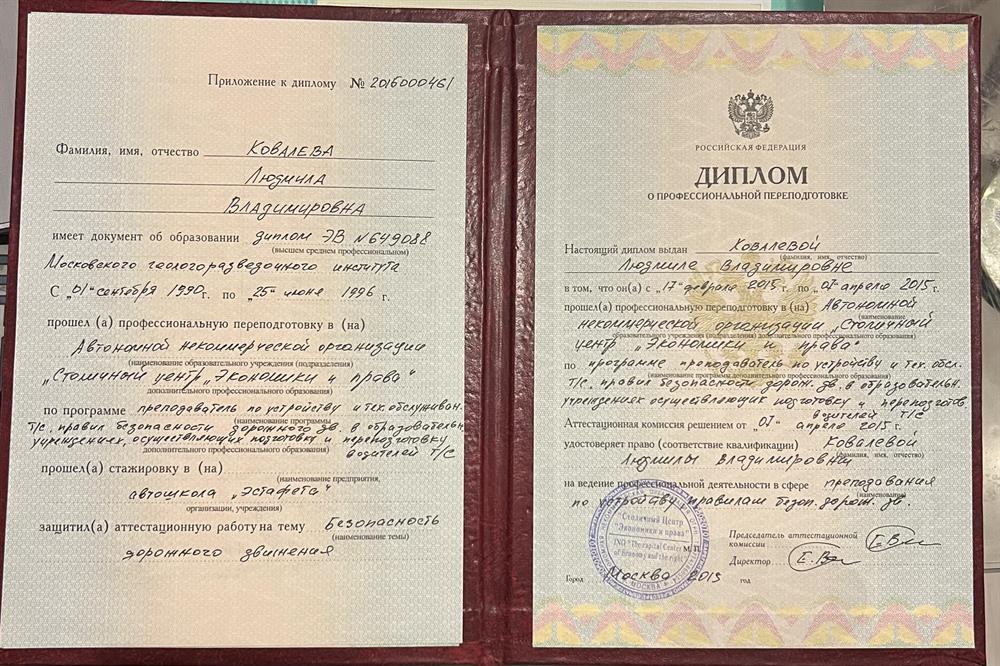 Приложение к диплому № 2016000461
Фамилия, имя, отчество Ковалева
Людмила
Владимировна
имеет документ об образовании диплом ЭВ N649088
(высшем среднем профессиональном)
Московского геологоразведочного института
С „01“ сентября 1990г. по „25“ июня 1996 г.
прошел (а) профессиональную переподготовку в (на)
Автономной некоммерческой организации
(наименование образовательного учреждения (подразделения)
„Столичный центр „Экономики и права“
дополнительного профессионального образования)
по программе преподаватель по устройству и тех. обслуживан.
(наименование программы
Т/с. правил безопасности дорожного дв. в образовательн.
учреждениях, осуществляющих подготовку и переподготовку
дополнительного профессионального образования) водителей Т/С
прошел(а) стажировку в (на)
(наименование предприятия,
автошкола „Эстафета“
организации, учреждения)
защитил(а) аттестационную работу на тему Безопасность
(наименование темы)
дорожного движения
РОССИЙСКАЯ ФЕДЕРАЦИЯ
ДИПЛОМ
О ПРОФЕССИОНАЛЬНОЙ ПЕРЕПОДГОТОВКЕ
Настоящий диплом выдан Ковалевой
(фамилия, имя, отчество)
Людмиле Владимировне
в том, что он(а) с „17“ февраля 2015г. по „07“ апреля 2015г.
прошел(а) профессиональную переподготовку в (на) Автономной
(наименование
некоммерческой организации „Столичный
образовательного учреждения (подразделения) дополнительного профессионального образования)
центр „Экономики и права“
по программе преподаватель по устройству и тех. обсл.
(наименование программы дополнительного профессионального образования)
Т/с. правил безопасности дорож. дв. в образовательн.
учреждениях осуществляющих подготовку и переподготов.
водителей Т/С
Аттестационная комиссия решением от „07“ апреля 2015г.
удостоверяет право (соответствие квалификации) Ковалевой
(фамилия, имя, отчество)
Людмилы Владимировны
на ведение профессиональной деятельности в сфере преподавания
(наименование)
по устройству, правилам безоп. дорож. дв.
Столичный Центр
"Экономики и права"
"The capital Center
of Economy and the right
МОСКВА
М.П.
Председатель аттестационной
комиссии
Директор
Город Москва 2015 год